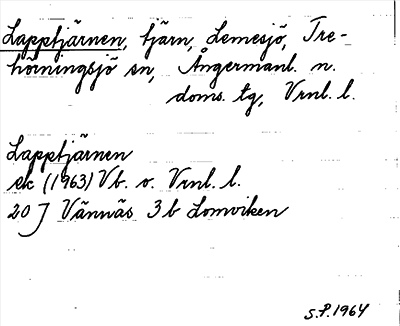 Lapptjärnen, tjärn, Lemesjö, Tre-
hörningsjö sn, Ångermanl. n.
doms. tg, Vrnl. l.
Lapptjärnen
ek (1963) Vb. o. Vrnl. l.
20 J Vännäs 3b Lomviken
S.P. 1964